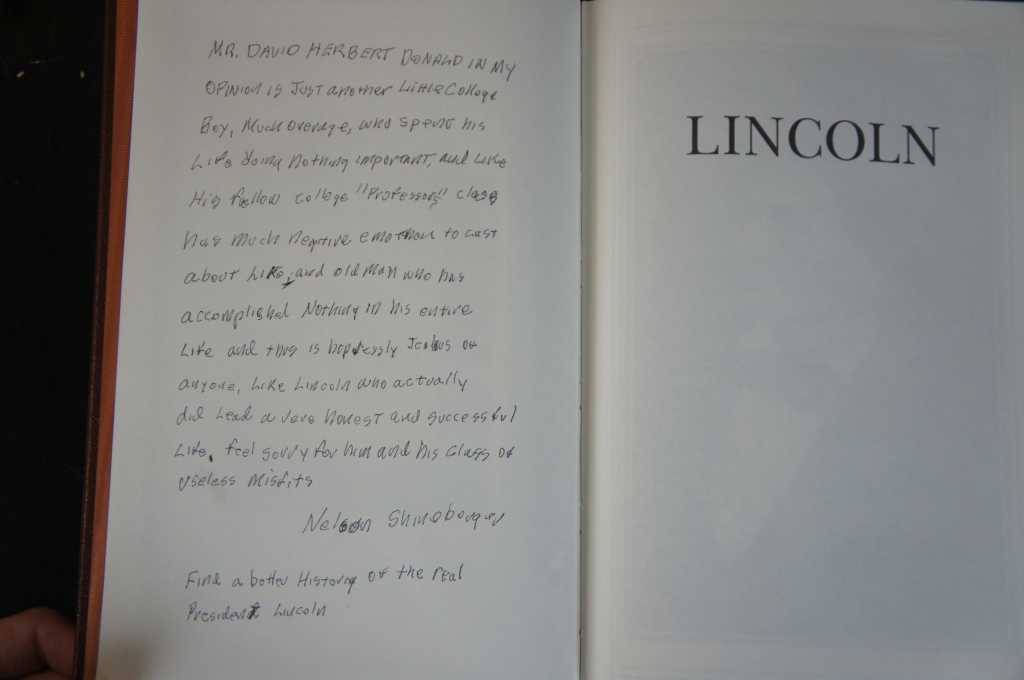 MR. DAVID HERBERT DONALD IN MY
OPINION IS JUST another Little College
Boy, Much average, who spent his
Life doing nothing important, and like
His fellow college "Professors" class
has much negitive emotion to cast
about Life, and old man who has
accomplished Nothing in his entire
Life and thus is hoplessly Jealous of
anyone, Like Lincoln who actually
did Lead a very honest and successful
Life, feel sorry for him and his class of
useless misfits
Nelson
Find a better History of the real
President Lincoln
LINCOLN